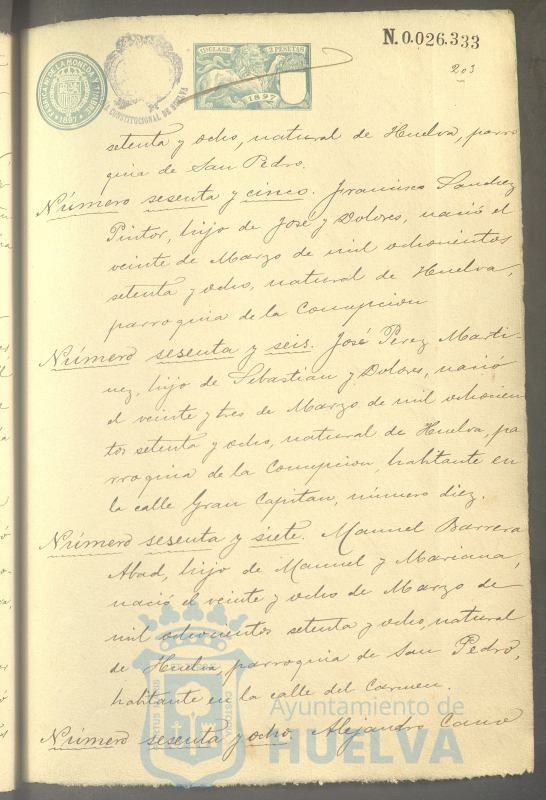 N. 0.026.333
FABRICA N. DE LA MONEDA Y TIMBRE
1897
CONSTITUCIONAL DE HUELVA
11ª CLASE
2 PESETAS
1897
203
setenta y ocho, natural de Huelva, parro
quia de San Pedro.
Número sesenta y cinco. Francisco Sanchez
Pintor, hijo de José y Dolores, nació el
veinte de Marzo de mil ochocientos
setenta y ocho, natural de Huelva,
parroquia de la Concepcion
Número sesenta y seis. José Perez Marti-
nez, hijo de Sebastian y Dolores, nació
el veinte y tres de Marzo de mil ochocien
tos setenta y ocho, natural de Huelva, pa
rroquia de la Concepcion, habitante en
la calle Gran Capitan, número diez.
Número sesenta y siete. Manuel Barrera
Abad, hijo de Manuel y Mariana,
nació el veinte y ocho de Marzo de
mil ochocientos setenta y ocho, natural
de Huelva, parroquia de San Pedro,
habitante en la calle del Carmen.
Número sesenta y ocho. Alejandro Cano
Ayuntamiento de
HUELVA